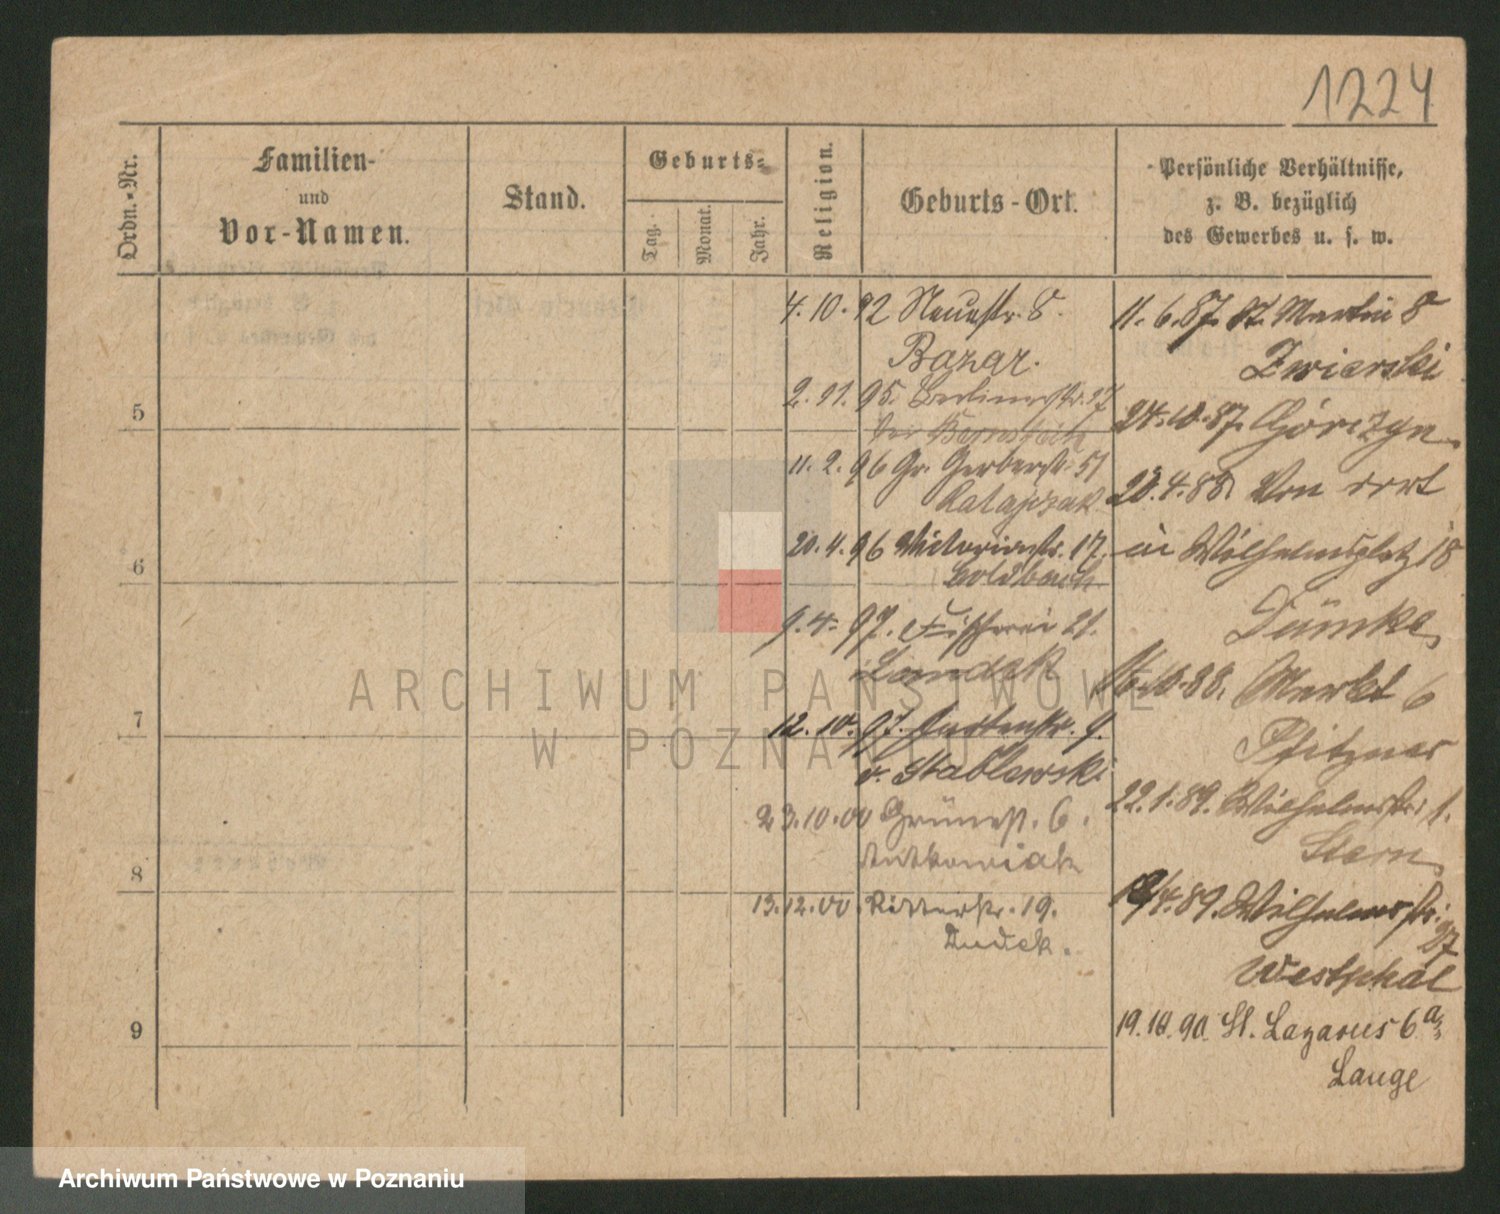 1224
Ordn.-Nr.
Familien-
und
Vor-Namen.
Stand.
Geburts-
Tag.
Monat.
Jahr.
Religion.
Geburts-Ort.
Persönliche Verhältnisse,
z. B. bezüglich
des Gewerbes u. s. w.
5
6
7
8
9
4. 10. 92 Neuestr. 8.
Bazar.
2. 11. 95. Berlinerstr. 17
bei
11. 2. 96 Gr. Gerberstr. 51
Ratajczak
20. 4. 96 Victoriastr. 17.
Goldbach
9. 4. 97. Fischerei 21.
Londzk
12. 10. 97. Gartenstr. 9.
v. Stablewski
23. 10. 00 Grünestr. 6.
Antkowiak
13. 12. 00. Ritterstr. 19.
Dudek.
11. 6. 87. St. Martin 8
Zwierski
24. 10. 87. Górczyn
20. 4. 88. Von dort
in Wilhelmsplatz 18
Dümke
10. 88. Markt 6
Pfitzner
22. 1. 89. Wilhelmstr. 1.
Stern
4. 89. Wilhelmstr. 27
Westphal
19. 10. 90. St. Lazarus 6a
Lange
ARCHIWUM PAŃSTWOWE
W POZNANIU
Archiwum Państwowe w Poznaniu